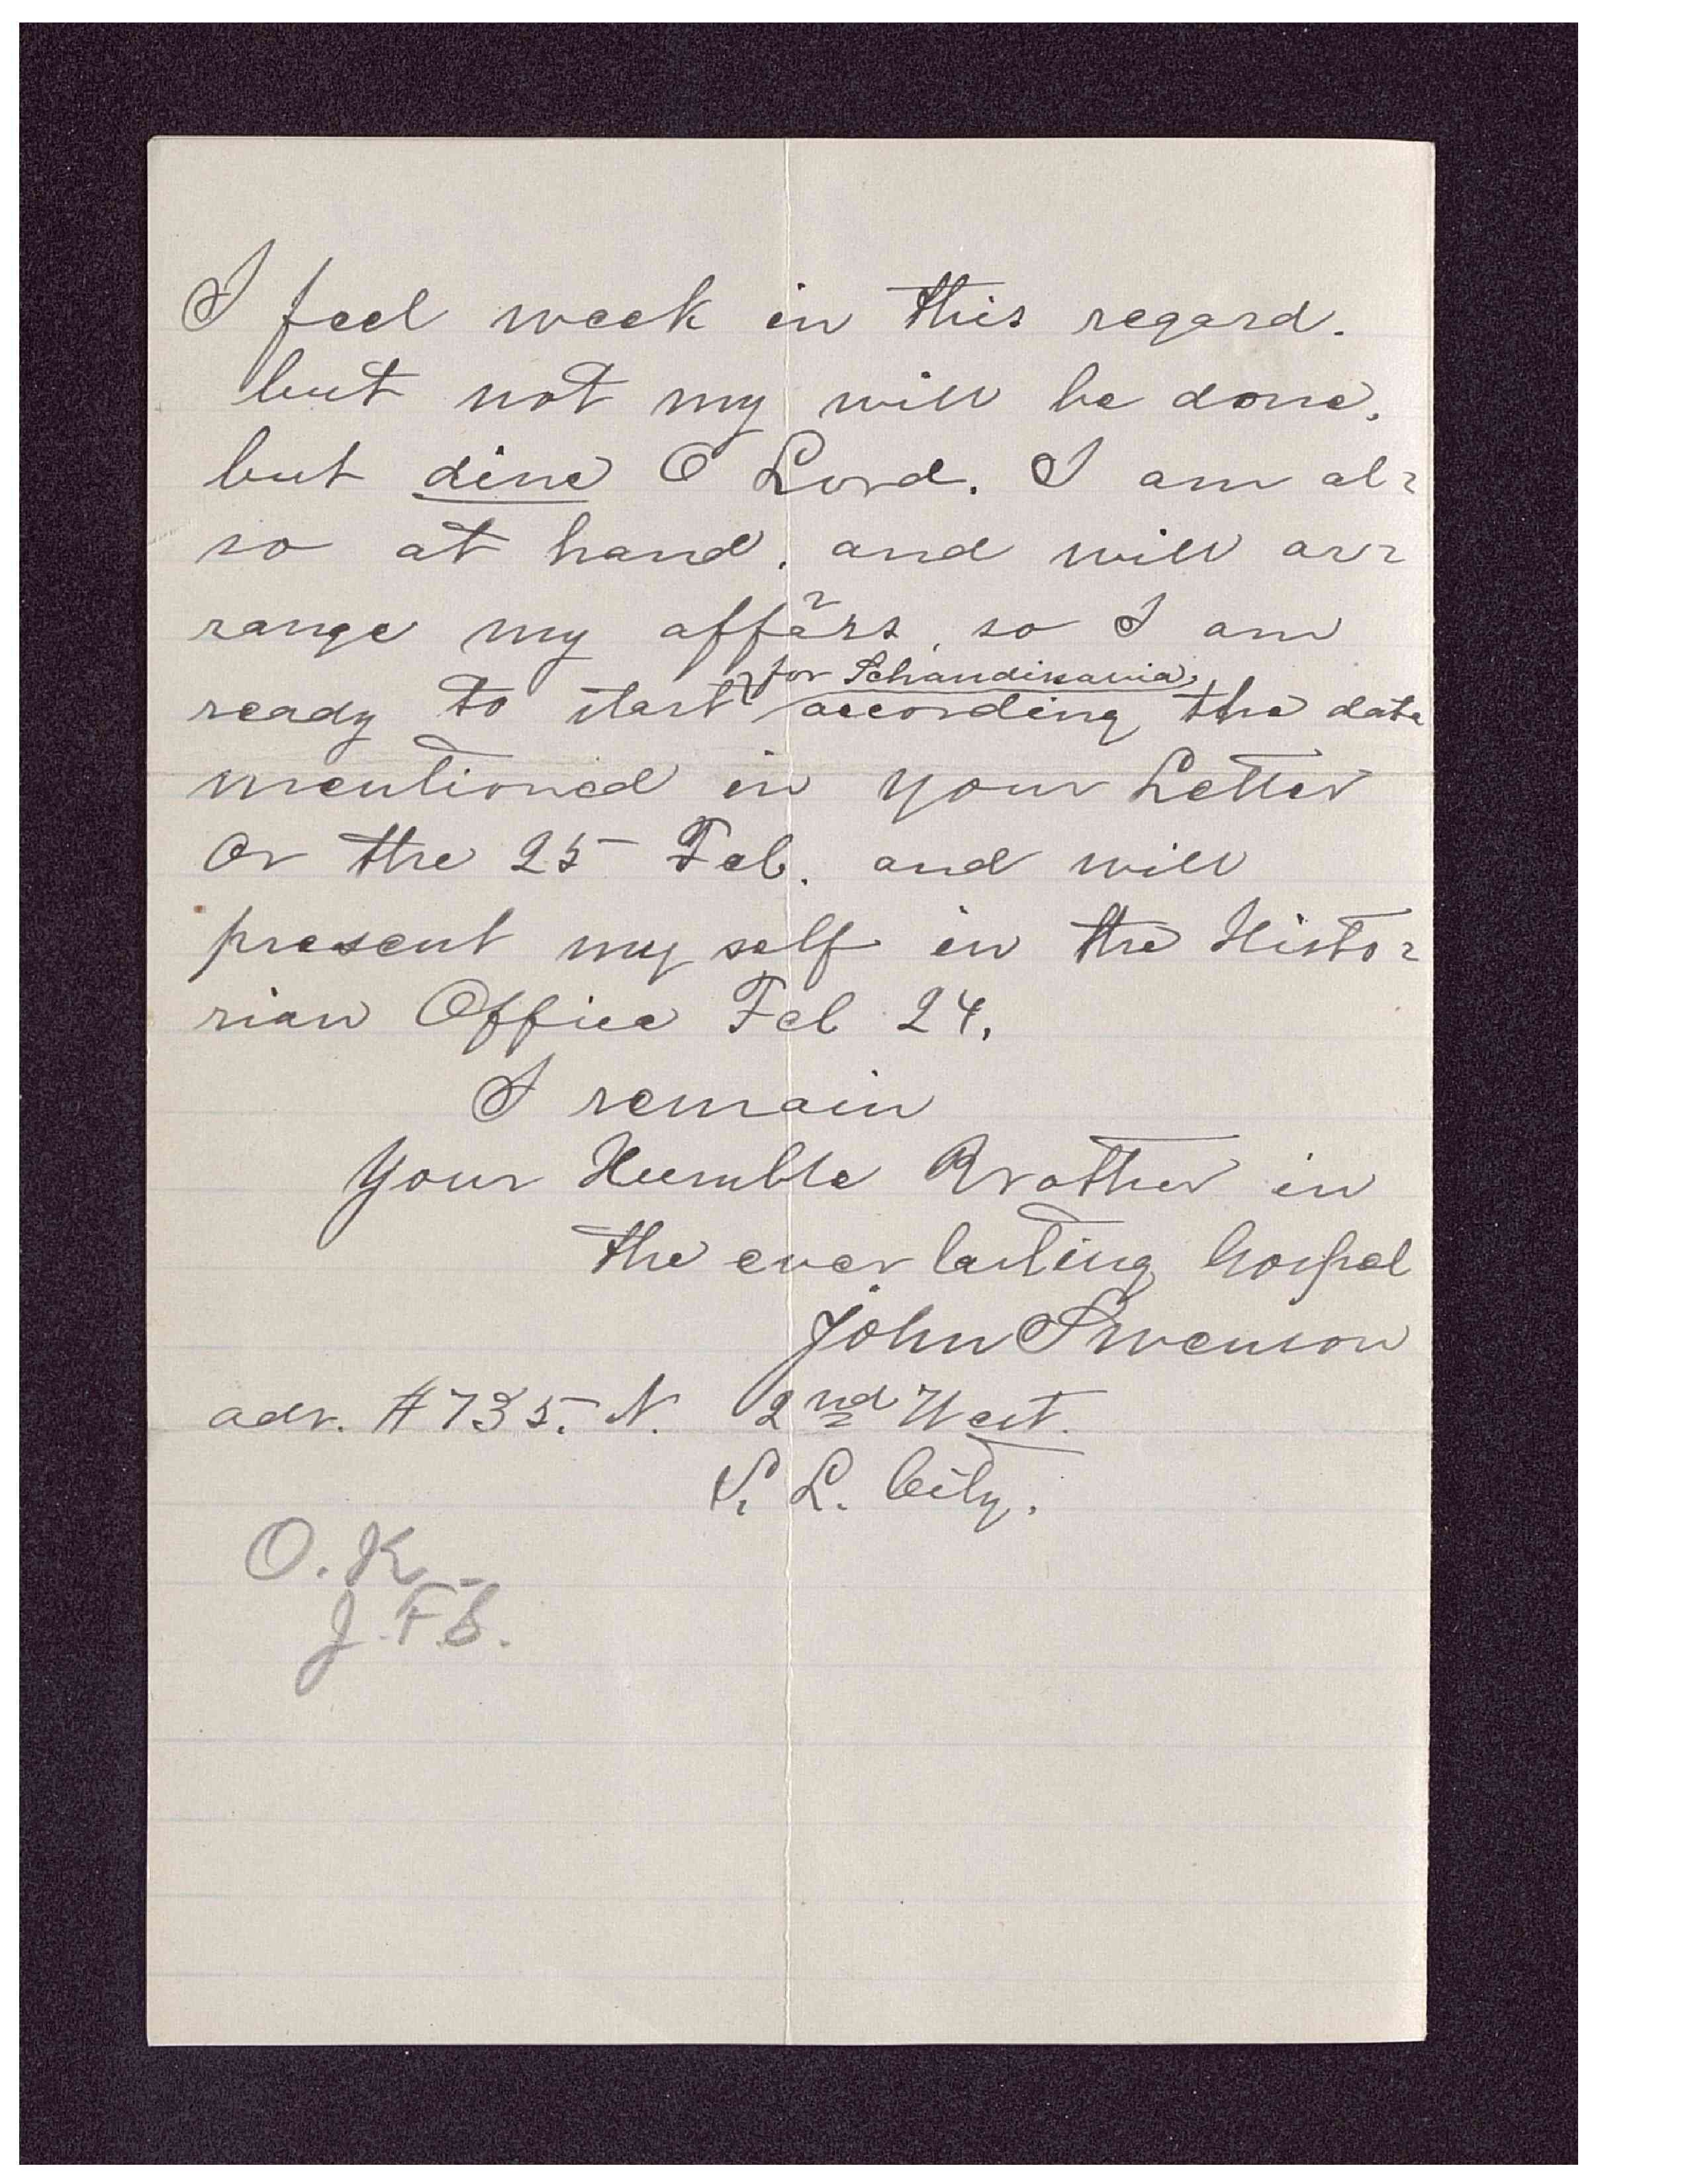 I feel week in this regard.
but not my will be done.
but dine O Lord. I am al-
so at hand. and will ar-
range my affärs, so I am
for Schandinavia,
ready to start according the date
mentioned in your Letter
or the 25 Feb. and will
present my self in the Histo-
rian Office Feb 24.
I remain
Your Humble Brother in
the everlasting Gospel
John Swenson
adr. #735. N. 2nd West.
S. L. City.
O. K.
J. F. S.